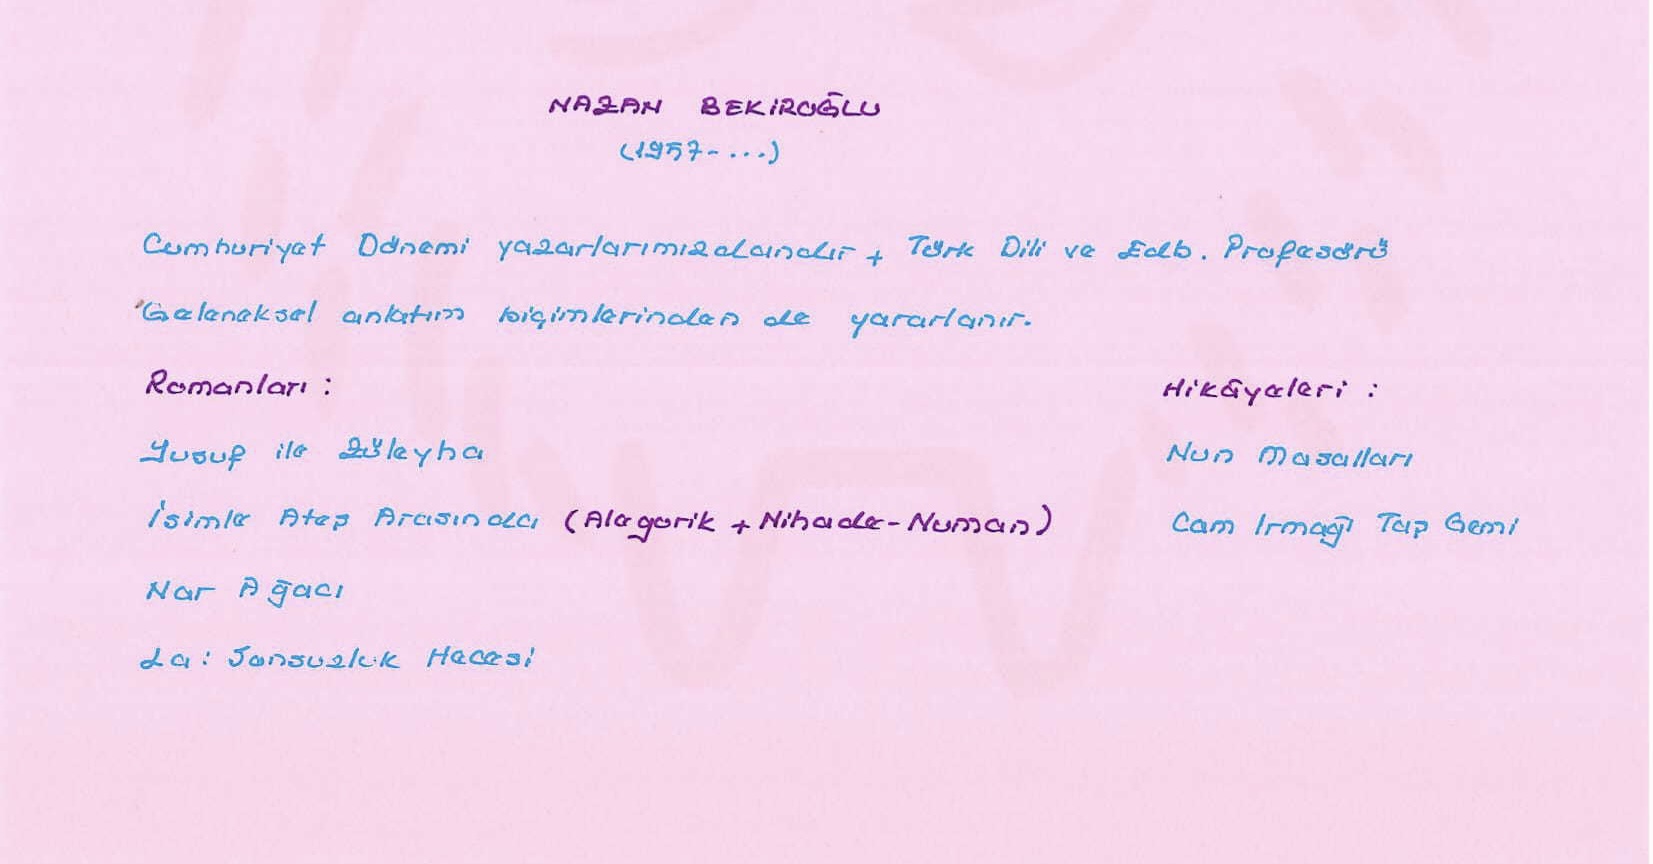 NAZAN BEKİROĞLU
(1957-...)
Cumhuriyet Dönemi yazarlarımızdandır + Türk Dili ve Edb. Profesörü
Geleneksel anlatım biçimlerinden de yararlanır.
Romanları :
Yusuf ile Züleyha
İsimle Ateş Arasında (Alegorik + Nihade-Numan)
Nar Ağacı
La: Sonsuzluk Hecesi
Hikâyeleri :
Nun Masalları
Cam Irmağı Taş Gemi